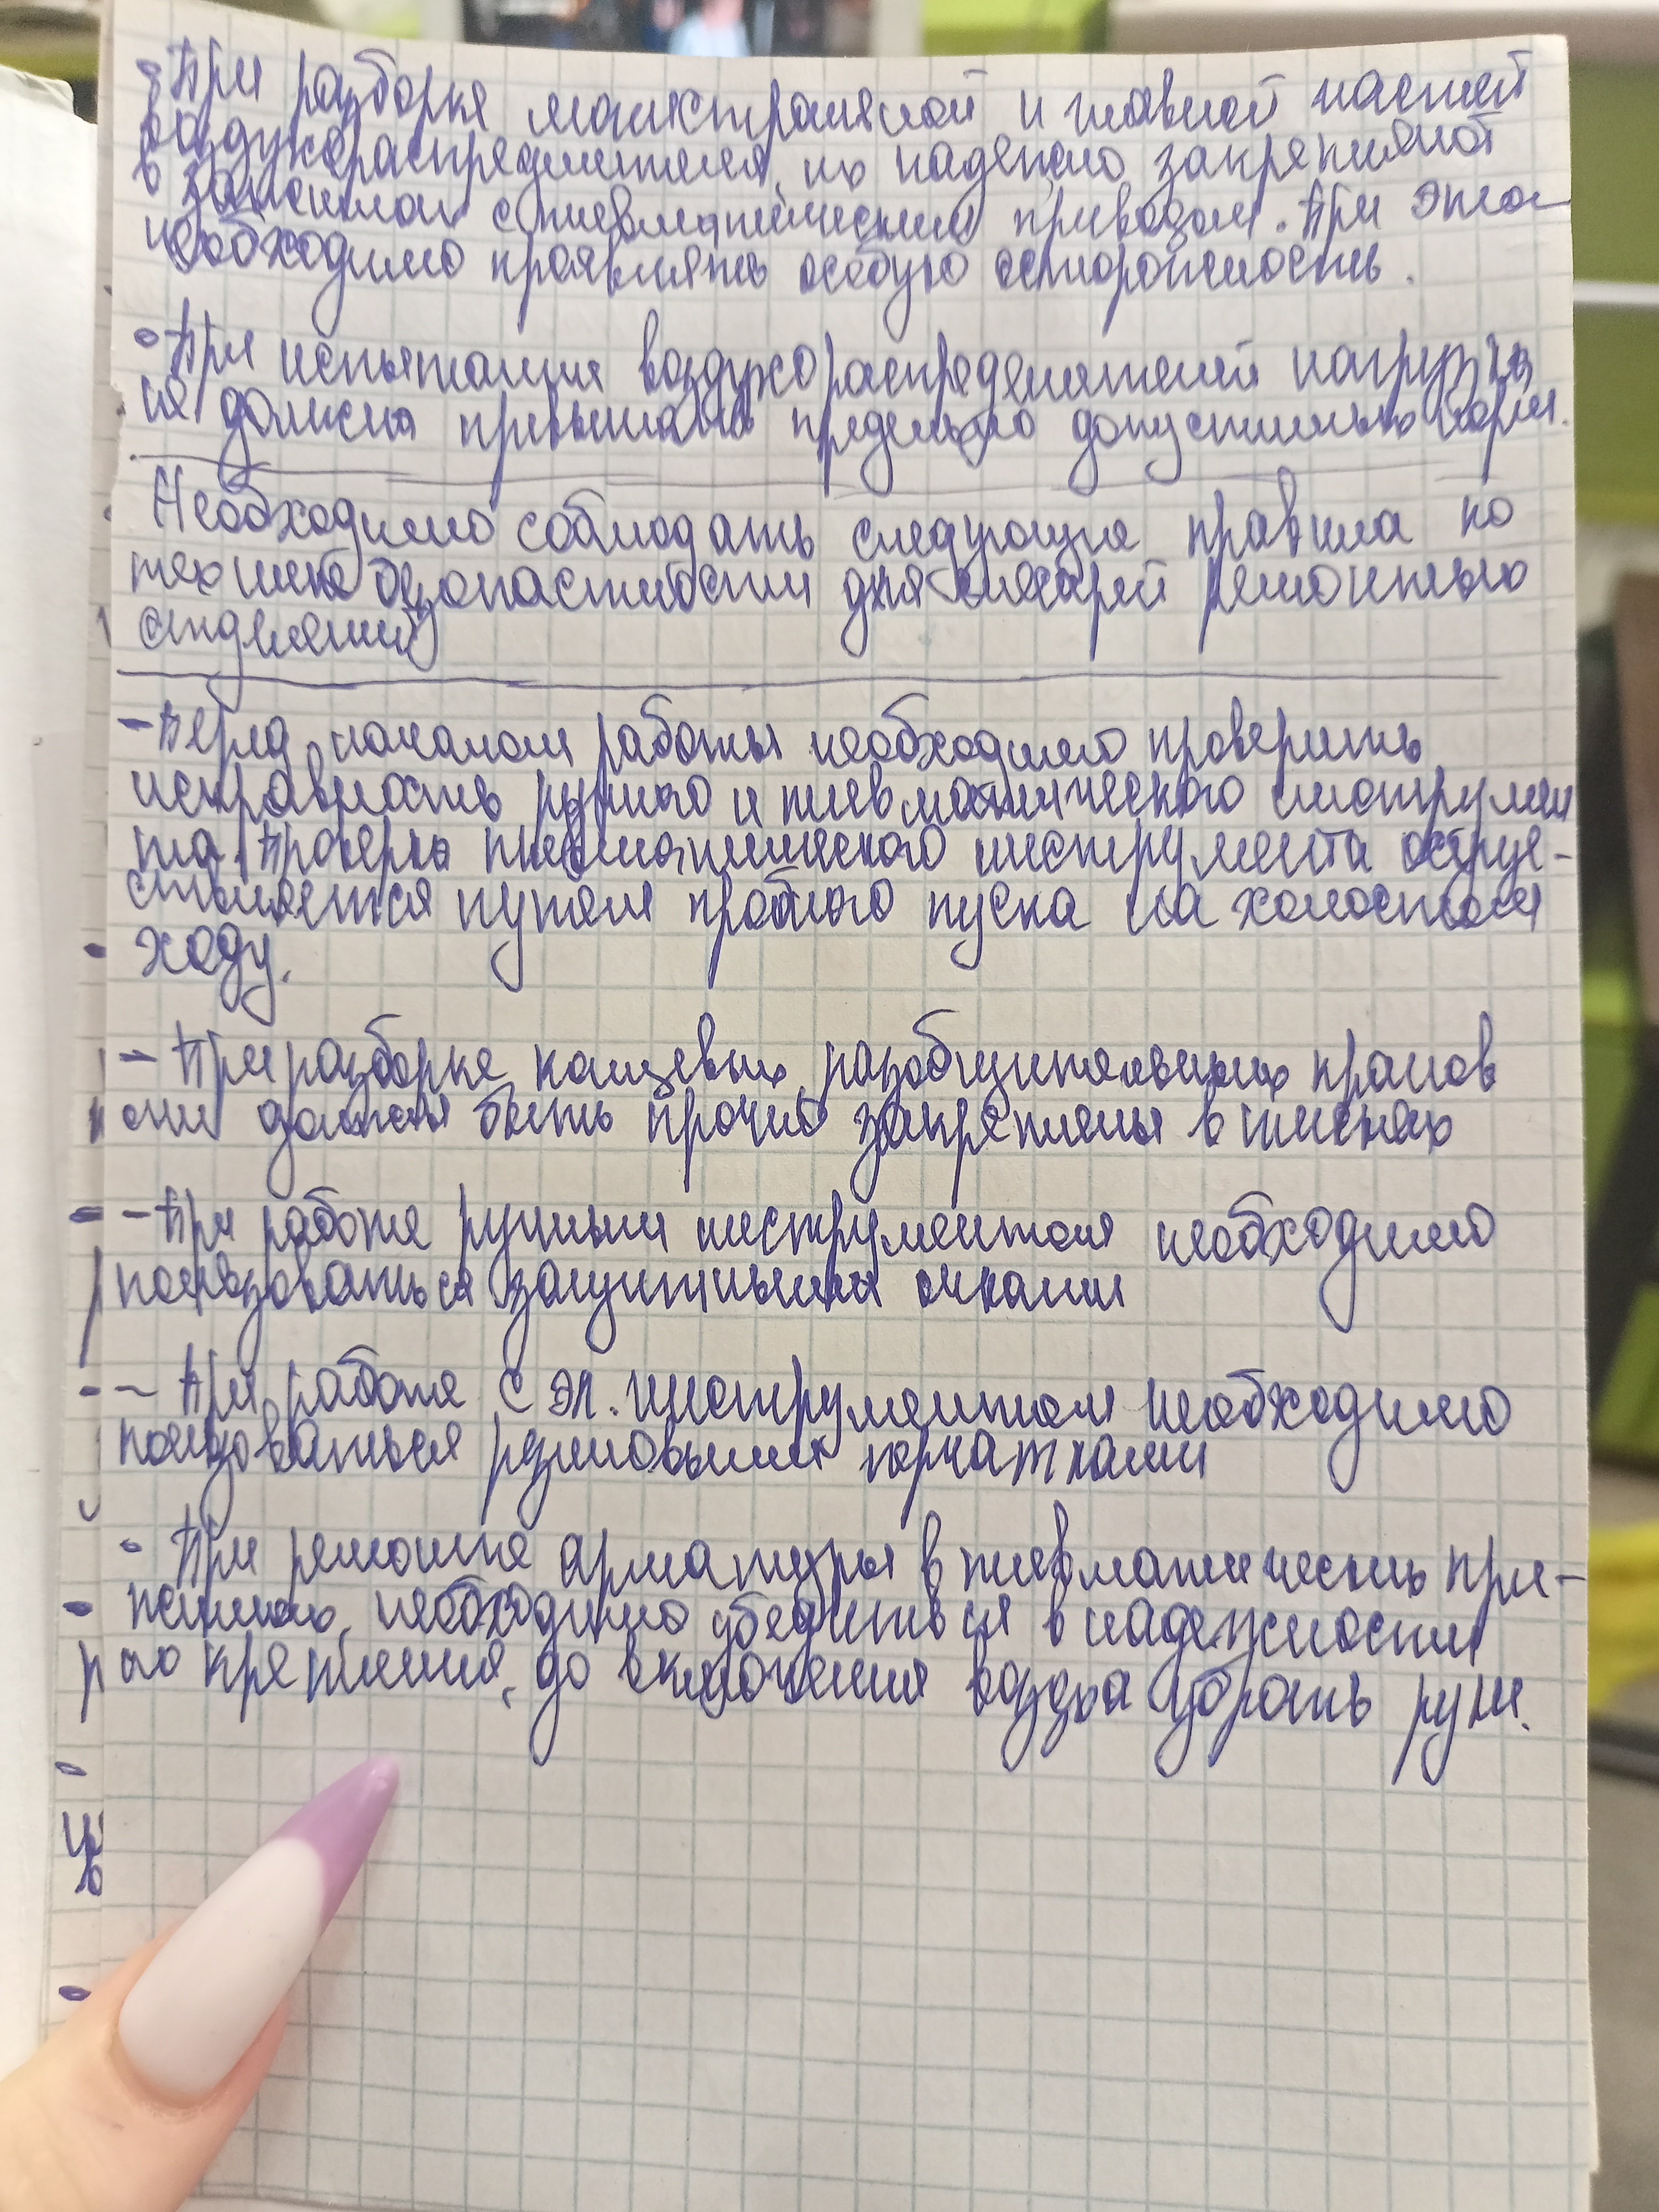 • При разборке магистральной и главной частей
воздухораспределителя, их надежно закрепляют
в зажимах с пневматическим приводом. При этом
необходимо проявлять особую осторожность.
• При испытании воздухораспределителей нагрузка
не должна превышать предельно допустимых норм.
Необходимо соблюдать следующие правила по
технике безопасности для слесарей ремонтных
отделений
- Перед началом работы необходимо проверить
исправность ручного и пневматического инструмен
та. Проверка пневматического инструмента осуще-
ствляется путем пробного пуска на холостом
ходу.
- При разборке концевых, разобщительных кранов
они должны быть прочно закреплены в тисках
- При работе ручным инструментом необходимо
пользоваться защитными очками
- При работе с эл. инструментом необходимо
пользоваться резиновыми перчатками
- При ремонте арматуры в пневматических при-
необходимо убедиться в надежности
крепления, до включения воздуха убрать руки.